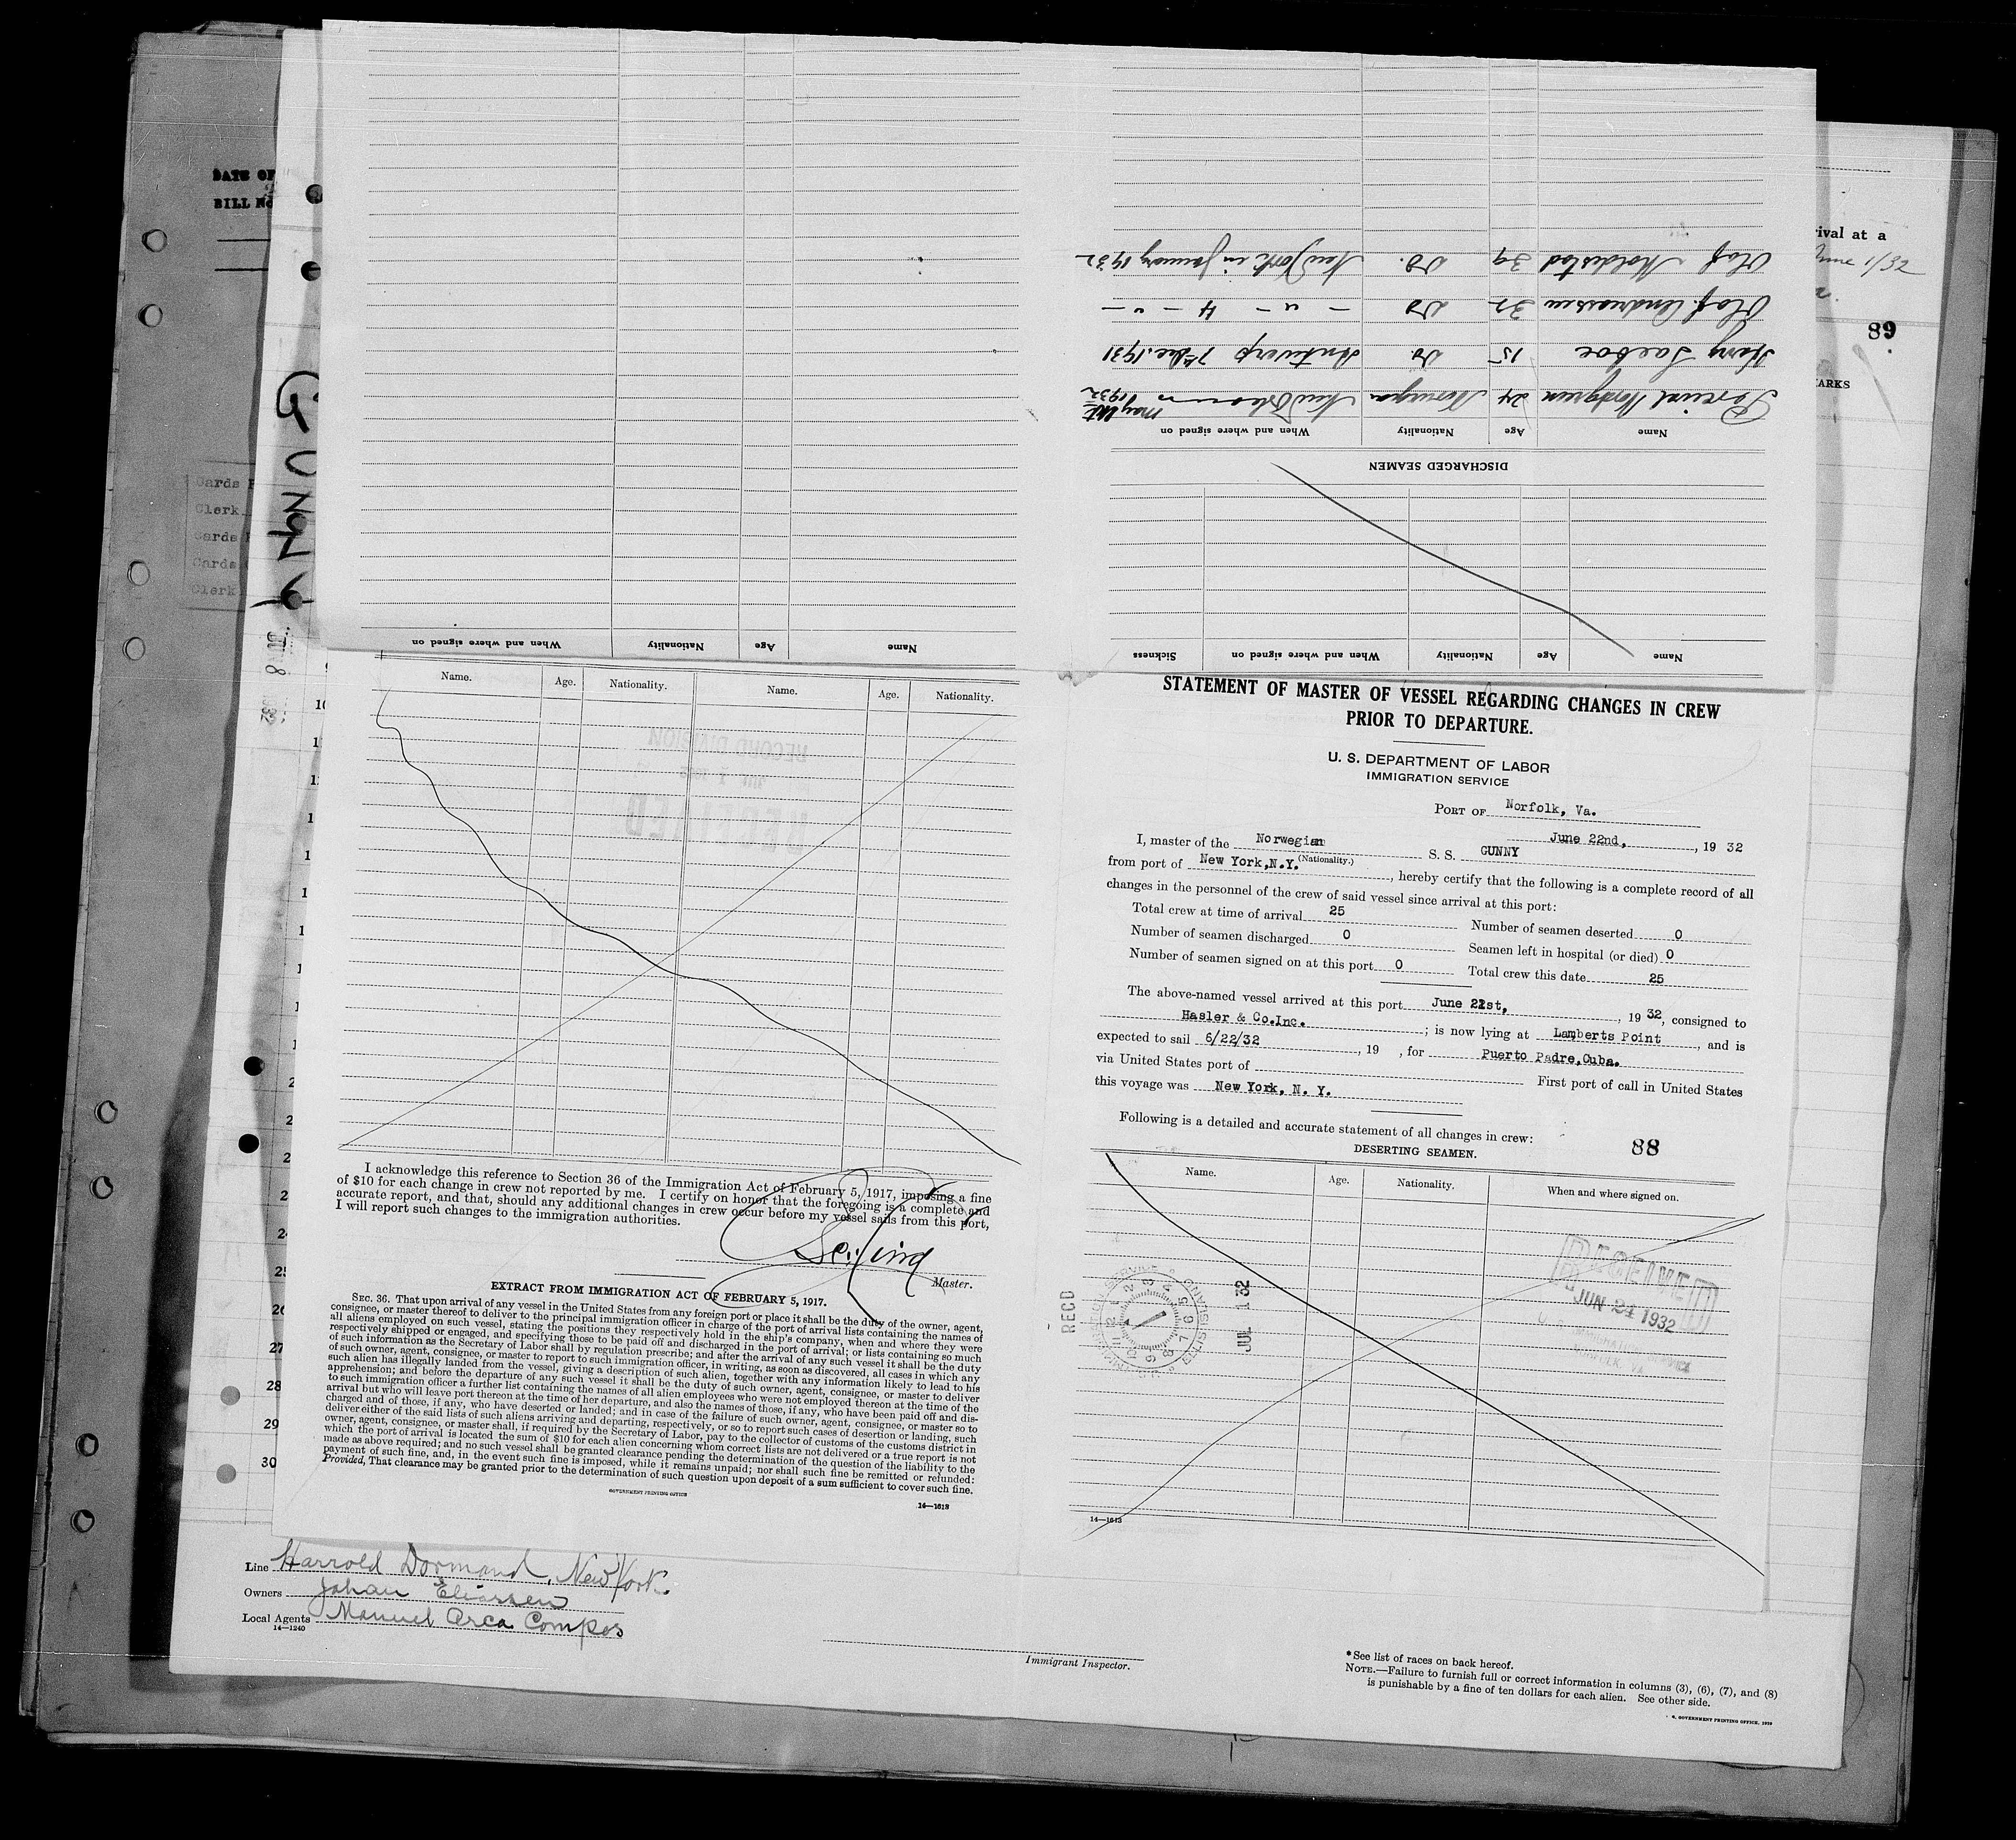 DATE OF
BILL No
Cards
Clerk
Cards
Cards
Clerk
GUNNY
JUL 8 1932
rival at a
June 1/32
89
ARKS
Name Age Nationality When and where signed on
Name Age Nationality When and where signed on Sickness
DISCHARGED SEAMEN
Name Age Nationality When and where signed on
24 Norwegian New Orleans May 1932
Harry Saeboe 15 do. Antwerp 7th Dec. 1931
Olaf Andreassen 32 do — " — 4 — " —
Olaf Moldestad 39 do. New York in January 1932
Name. Age. Nationality. Name. Age. Nationality.
RECORD DIVISION
RECEIVED
I acknowledge this reference to Section 36 of the Immigration Act of February 5, 1917, imposing a fine
of $10 for each change in crew not reported by me. I certify on honor that the foregoing is a complete and
accurate report, and that, should any additional changes in crew occur before my vessel sails from this port,
I will report such changes to the immigration authorities.
Master.
EXTRACT FROM IMMIGRATION ACT OF FEBRUARY 5, 1917.
SEC. 36. That upon arrival of any vessel in the United States from any foreign port or place it shall be the duty of the owner, agent,
consignee, or master thereof to deliver to the principal immigration officer in charge of the port of arrival lists containing the names of
all aliens employed on such vessel, stating the positions they respectively hold in the ship's company, when and where they were
respectively shipped or engaged, and specifying those to be paid off and discharged in the port of arrival; or lists containing so much
of such information as the Secretary of Labor shall by regulation prescribe; and after the arrival of any such vessel it shall be the duty
of such owner, agent, consignee, or master to report to such immigration officer, in writing, as soon as discovered, all cases in which any
such alien has illegally landed from the vessel, giving a description of such alien, together with any information likely to lead to his
apprehension; and before the departure of any such vessel it shall be the duty of such owner, agent, consignee, or master to deliver
to such immigration officer a further list containing the names of all alien employees who were not employed thereon at the time of the
arrival but who will leave port thereon at the time of her departure, and also the names of those, if any, who have been paid off and dis-
charged and of those, if any, who have deserted or landed; and in case of the failure of such owner, agent, consignee, or master so to
deliver either of the said lists of such aliens arriving and departing, respectively, or so to report such cases of desertion or landing, such
owner, agent, consignee, or master shall, if required by the Secretary of Labor, pay to the collector of customs of the customs district in
which the port of arrival is located the sum of $10 for each alien concerning whom correct lists are not delivered or a true report is not
made as above required; and no such vessel shall be granted clearance pending the determination of the question of the liability to the
payment of such fine, and, in the event such fine is imposed, while it remains unpaid; nor shall such fine be remitted or refunded:
Provided, That clearance may be granted prior to the determination of such question upon deposit of a sum sufficient to cover such fine.
GOVERNMENT PRINTING OFFICE
14—1613
STATEMENT OF MASTER OF VESSEL REGARDING CHANGES IN CREW
PRIOR TO DEPARTURE.
U. S. DEPARTMENT OF LABOR
IMMIGRATION SERVICE
PORT OF Norfolk, Va.
June 22nd, , 19 32
I, master of the Norwegian S. S. GUNNY
(Nationality.)
from port of New York,N.Y. , hereby certify that the following is a complete record of all
changes in the personnel of the crew of said vessel since arrival at this port:
Total crew at time of arrival 25 Number of seamen deserted 0
Number of seamen discharged 0 Seamen left in hospital (or died) 0
Number of seamen signed on at this port 0 Total crew this date 25
The above-named vessel arrived at this port June 21st, , 19 32, consigned to
Hasler & Co.Inc. ; is now lying at Lamberts Point , and is
expected to sail 6/22/32 , 19 , for Puerto Padre,Cuba.
via United States port of First port of call in United States
this voyage was New York, N. Y.
Following is a detailed and accurate statement of all changes in crew:
88
DESERTING SEAMEN.
Name. Age. Nationality. When and where signed on.
RECEIVED
JUN 24 1932
U. S. IMMIGRATION SERVICE
NORFOLK, VA.
RECD
JUL 1 32
14—1613
27
28
29
30
Line Harrold Dormand, New York.
Owners Johan Eliassen
Local Agents Manuel Arca Campos
14—1240
Immigrant Inspector.
*See list of races on back hereof.
NOTE.—Failure to furnish full or correct information in columns (3), (6), (7), and (8)
is punishable by a fine of ten dollars for each alien. See other side.
GOVERNMENT PRINTING OFFICE, 1929